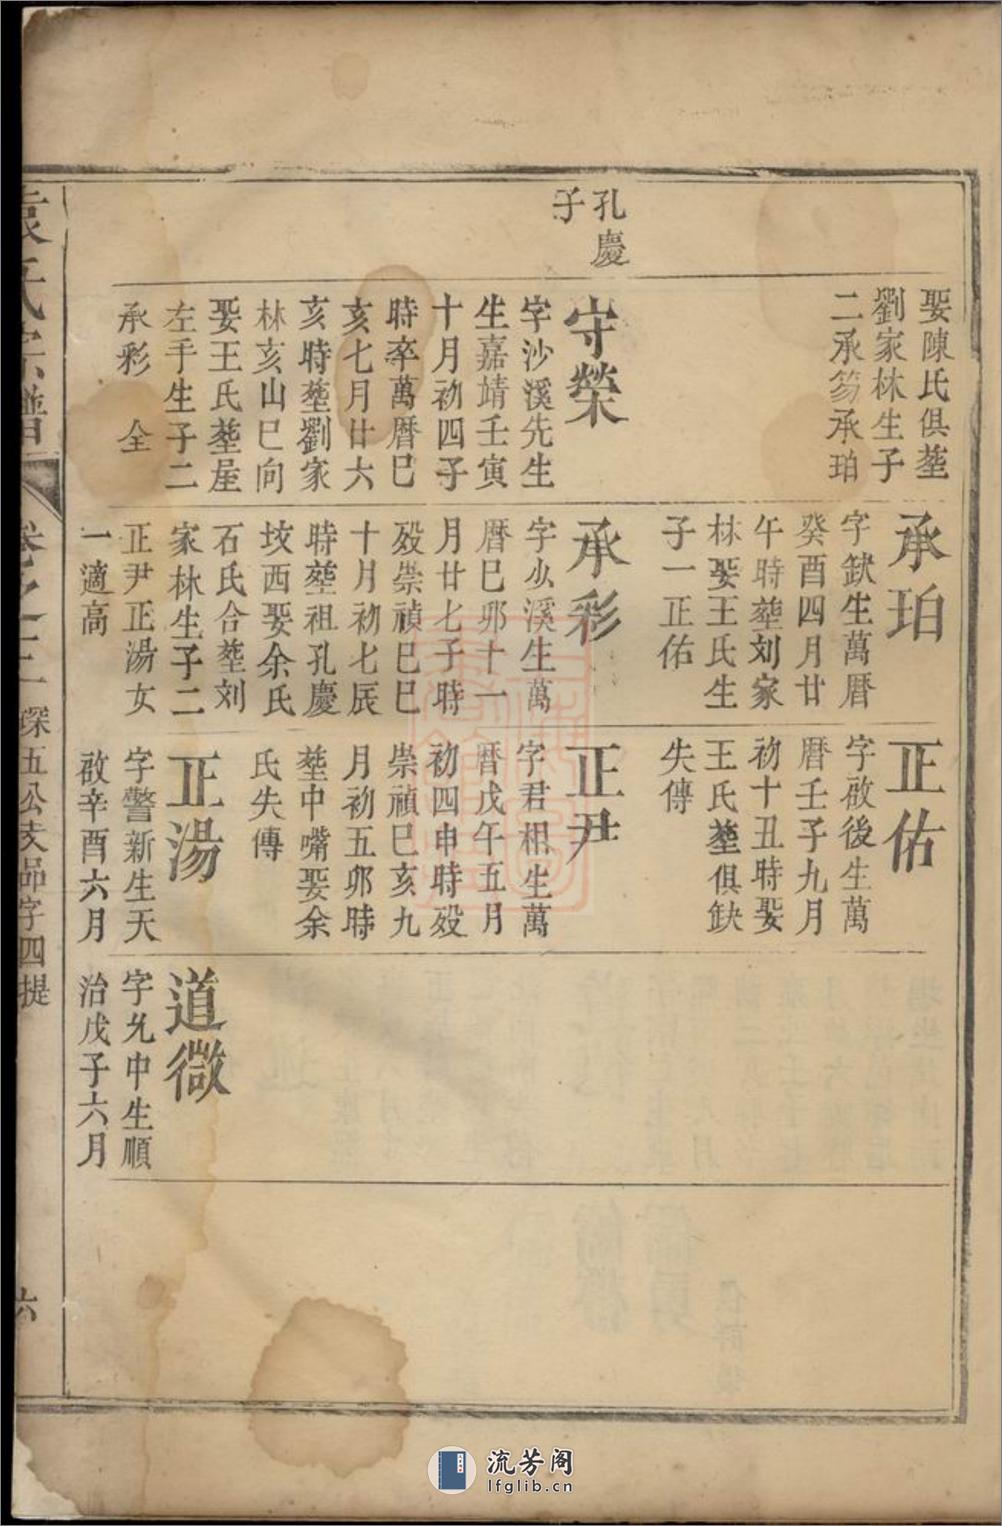 孔慶
子
娶陳氏俱塟
劉家林生子
二承笏承珀
守榮
字沙溪先生
生嘉靖壬寅
十月初四子
時卒萬曆巳
亥七月廿六
亥時塟劉家
林亥山巳向
娶王氏塟屋
左手生子二
承彩 全
承珀
字缺生萬曆
癸酉四月廿
午時塟刘家
林娶王氏生
子一正佑
承彩
字少溪生萬
曆巳夘十一
月廿七子時
殁崇禎巳巳
十月初七辰
時塟祖孔慶
坟西娶余氏
石氏合塟刘
家林生子二
正尹正湯女
一適高
正佑
字啟後生萬
曆壬子九月
初十丑時娶
王氏塟俱缺
失傳
正尹
字君相生萬
曆戊午五月
初四申時殁
崇禎巳亥九
月初五卯時
塟中嘴娶余
氏失傳
正湯
字警新生天
啟辛酉六月
道微
字允中生順
治戊子六月
袁氏宗譜
卷之三
探五公支品字四提
六
流芳阁
lfglib.cn